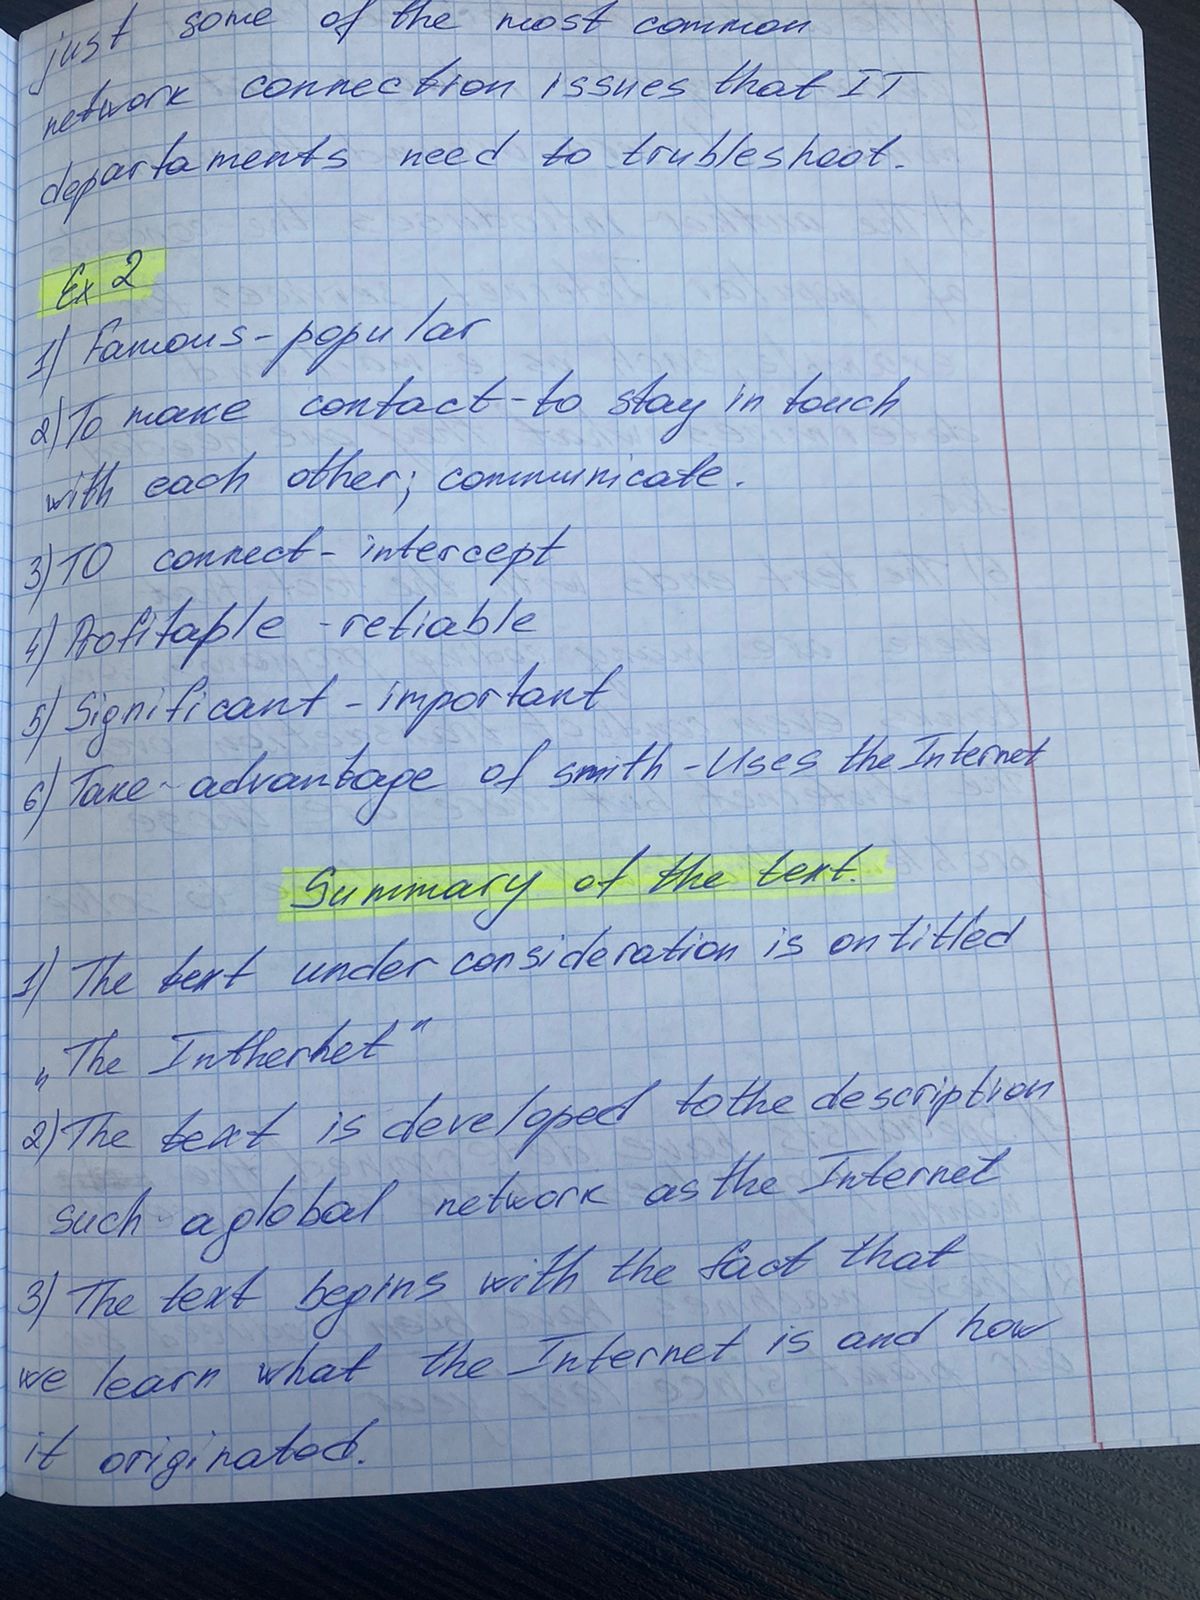 just some of the most common
network connection issues that IT
departaments need to trubleshoot.
Ex 2
1) Famous - popular
2) To make contact - to stay in touch
with each other; communicate.
3) TO connect - intercept
4) Profitaple - retiable
5) Significant - important
6) Take advantage of smith - Uses the Internet
Summary of the text.
1) The text under consideration is ontitled
„The Inthernet"
2) The text is developed to the description
such a global network as the Internet
3) The text begins with the fact that
we learn what the Internet is and how
it originated.